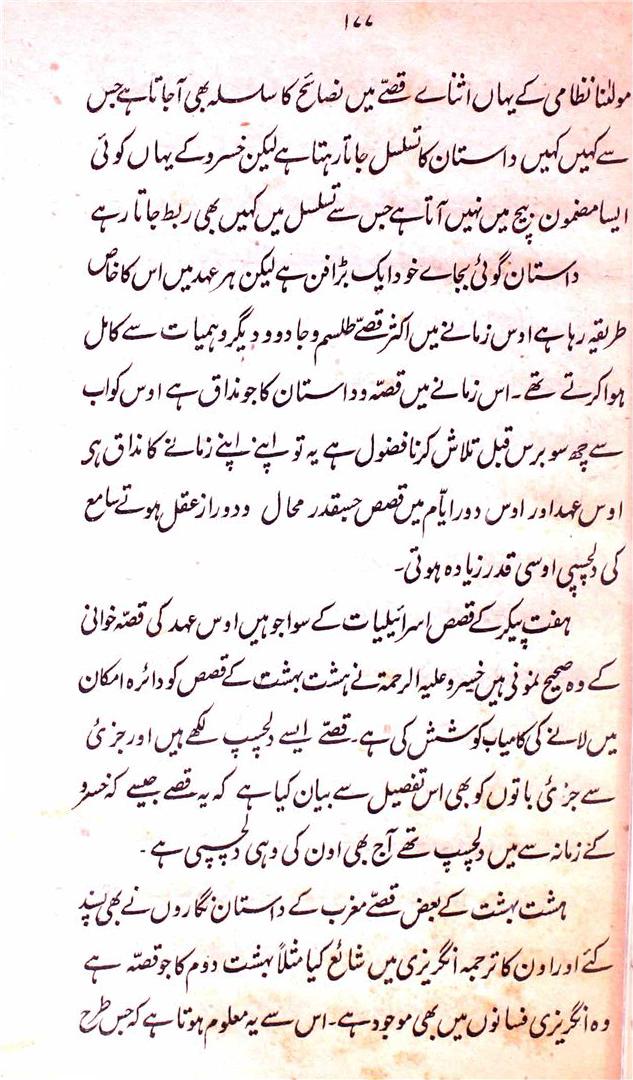 ۱۷۷
مولٰنا نظامی کے یہاں اثناے قصّے میں نصائح کا سلسلہ بھی آجاتا ہے جس
سے کہیں کہیں داستان کا تسلسل جاتا رہتا ہے لیکن خسرو کے یہاں کوئی
ایسا مضمون بیچ میں نہیں آتا ہے جس سے تسلسل میں کہیں بھی ربط جاتا رہے
داستان گوئی بجاے خود ایک بڑا فن ہے لیکن ہر عہد میں اس کا خاص
طریقہ رہا ہے اوس زمانے میں اکثر قصّے طلسم و جادو و دیگر وہمیات سے کامل
ہوا کرتے تھے۔ اس زمانے میں قصّہ و داستان کا جو مذاق ہے اوس کو اب
سے چھ سو برس قبل تلاش کرنا فضول ہے یہ تو اپنے اپنے زمانے کا مذاق ہی
اوس عہد اور اوس دور ایّام میں قصص جسقدر محال و دور از عقل ہوتے سامع
کی دلچسپی اوسی قدر زیادہ ہوتی۔
ہفت پیکر کے قصص اسرائیلیات کے سوا جو ہیں اوس عہد کی قصّہ خوانی
کے وہ صحیح نمونی ہیں خسرو علیہ الرحمۃ نے ہشت بہشت کے قصص کو دائرہ امکان
میں لانے کی کامیاب کوشش کی ہے۔ قصّے ایسے دلچسپ لکھے ہیں اور جزئ
سے جزئ باتوں کو بھی اس تفصیل سے بیان کیا ہے کہ یہ قصے جیسے کہ خسرو
کے زمانہ سے میں دلچسپ تھے آج بھی اون کی وہی دلچسپی ہے۔
ہشت بہشت کے بعض قصّے مغرب کے داستان نگاروں نے بھی پسند
کئے اور اون کا ترجمہ انگریزی میں شائع کیا مثلاً بہشت دوم کا جو قصّہ ہے
وہ انگریزی فسانوں میں بھی موجود ہے۔ اس سے یہ معلوم ہوتا ہے کہ جس طرح